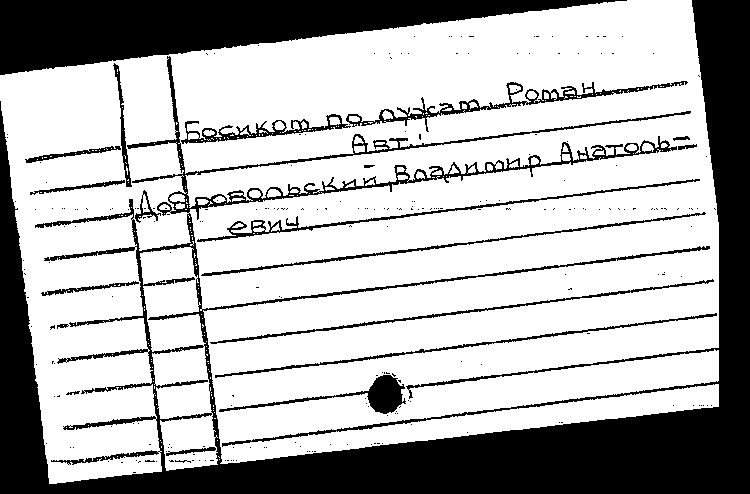 Босиком по лужам. Роман.
Авт.:
Добровольский, Владимир Анатоль-
евич.